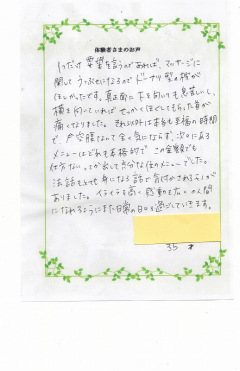 体験者さまのお声
1つだけ要望を言うのであれば、マッサージに
関してうつぶせになるのでドーナツ型の枕が
ほしかったです。真正面に下を向いても息苦しいし、
横を向いていれば せっかくほどしてもらった首が
痛くなりました。それ以外は本当に至福の時間
で、戸惑うなんて全く気にならず、次々に出る
メニューはどれも本格的で この金額でも
仕方ないってか出して十分な位のメニューでした。
法話もとても身になる話で気付かされる
ありました。イライラを高く感動を広くの人間
になれるようにまた日常の日々を過ごしていきます。
35 才